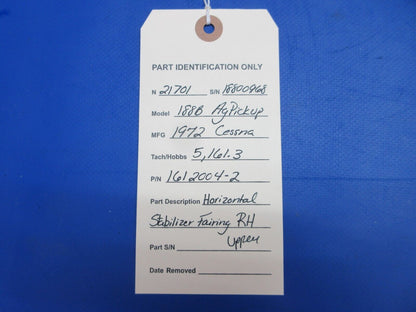 PART IDENTIFICATION ONLY
N 21701 S/N 18800968
Model 188B AgPickup
MFG 1972 Cessna
Tach/Hobbs 5,161.3
P/N 1612004-2
Part Description Horizontal
Stabilizer Fairing RH
Upper
Part S/N
Date Removed